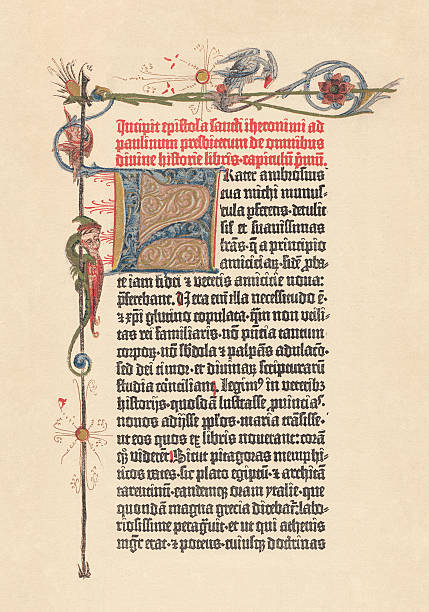 Incipit epistola sancti iheronimi ad
paulinum presbiterum de omnibus
divine historie libris·capitulū pmū.
Frater ambrosius
tua michi munus-
cula pferens·detulit
sil et suavissimas
lras·q a principio
amiciciaꝝ·fidē pba-
te iam fidei ⁊ veteris amicicie nova:
pferebant. Vera eni illa necessitudo ē·
⁊ xpi glutino copulata·qm non utili-
tas rei familiaris·nō pntia tantum
corpoꝝ·nō sbdola ⁊ palpās adulacō·
sed dei timor·et divinaꝝ scripturarū
studia conciliant. Legimꝰ in veteribꝫ
historijs·quosdā lustrasse puincias·
novos adijsse pplos·maria trāsisse·
ut eos quos ex libris noverant: corā
qꝫ viderēt. Sicut pitagoras memphi-
ticos vates·sic plato egiptū·⁊ architā
tarentinū·eandemqꝫ oram ytalie·que
quondā magna grecia dicebat: labo-
riosissime peragvit·et ut qui athenis
mgr erat·⁊ potens·cuiusqꝫ doctrinas